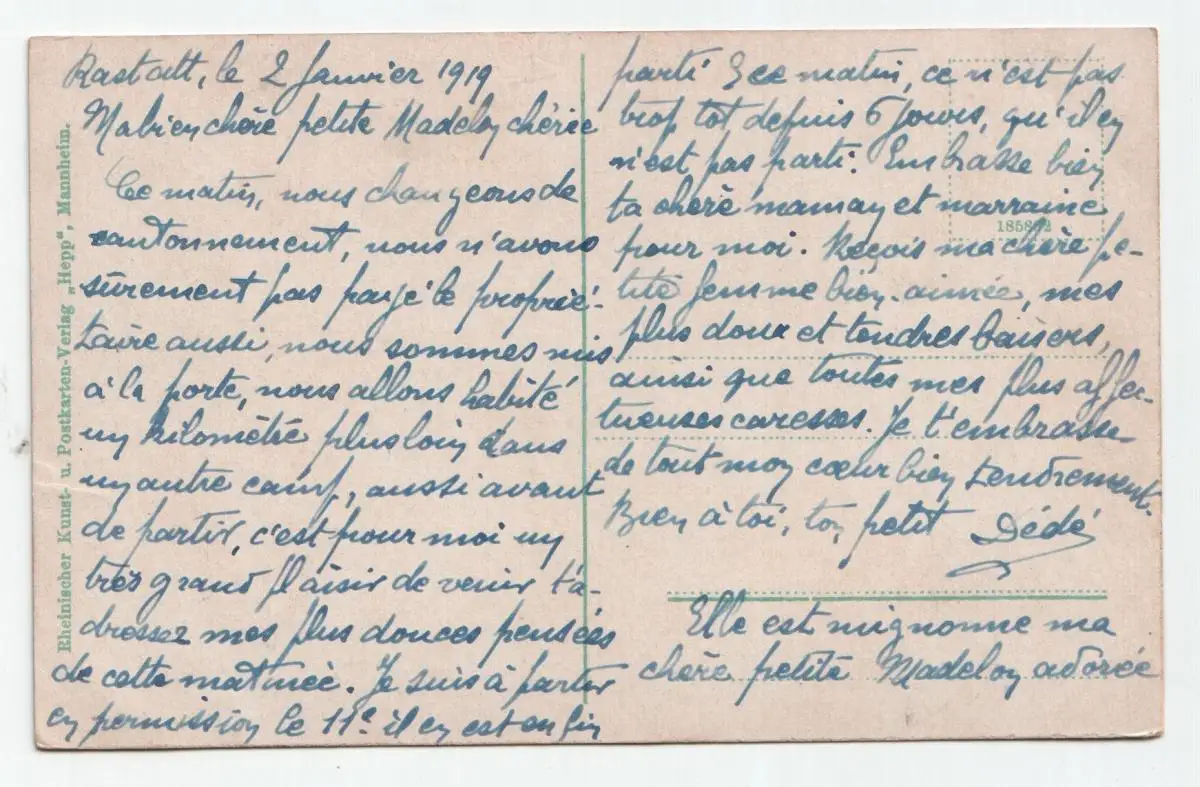 Rastatt, le 2 Janvier 1919
Ma bien chère petite Madelon chérie
Ce matin, nous changeons de
cantonnement, nous n'avons
sûrement pas payé le proprié-
taire aussi, nous sommes mis
à la porte, nous allons habité
un kilomètre plus loin dans
un autre camp, aussi avant
de partir, c'est pour moi un
très grand plaisir de venir t'a-
dressez mes plus douces pensées
de cette matinée. Je suis à partir
en permission le 11e il en est enfin
parti 3 ce matin, ce n'est pas
trop tot depuis 6 jours, qu'il en
n'est pas parti. Embrasse bien
ta chère maman et marraine
pour moi. Reçois ma chère pe-
tite femme bien-aimée, mes
plus doux et tendres baisers,
ainsi que toutes mes plus affec-
tueuses caresses. Je t'embrasse
de tout mon cœur bien tendrement.
Bien à toi, ton petit Dédé
Elle est mignonne ma
chère petite Madelon adorée
Rheinischer Kunst- u. Postkarten-Verlag „Hepp", Mannheim.